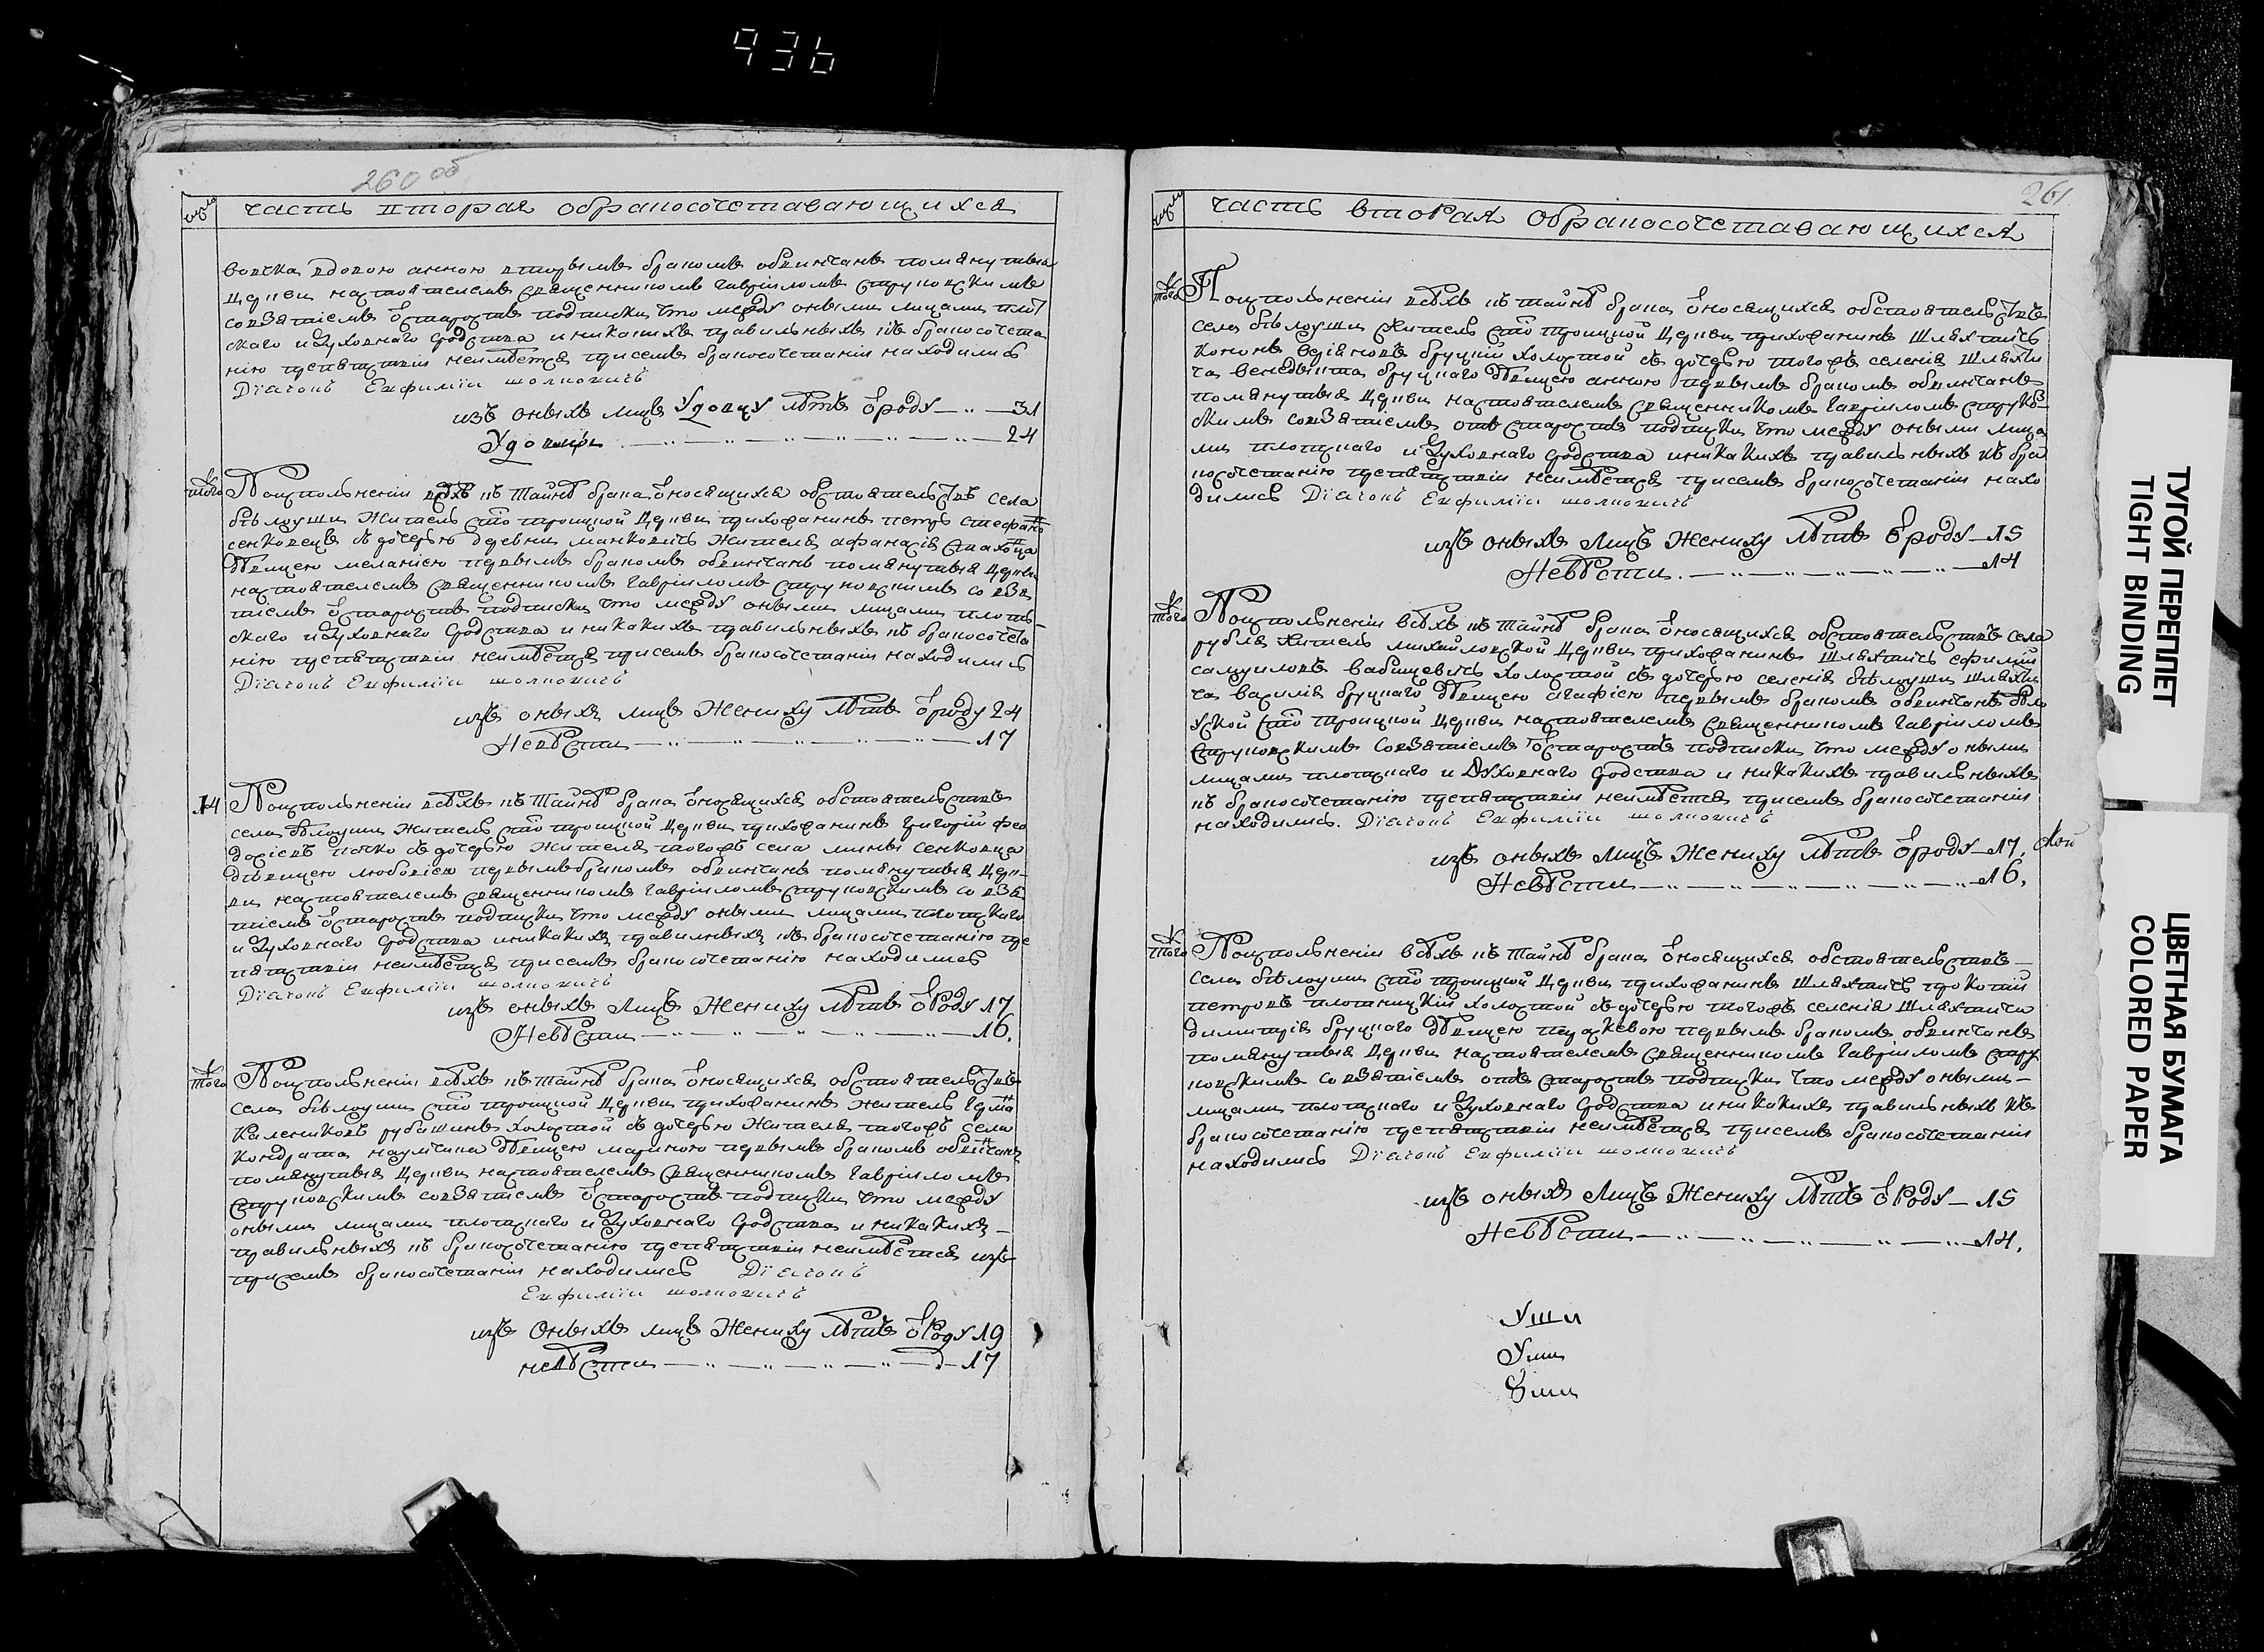 936
260 об
числа
часть вторая обракосочетавающихся
вовчка вдовою анною вторымъ бракомъ обвѣнчанъ помянутыя
Церкви настоятелемъ священникомъ Гавріиломъ струковскимъ
совзятіемъ ѿстаростъ подписки что между оными лицами плот
скаго идуховнаго сродства иникакихъ правильныхъ къ бракосочета
нію препятствіи неимѣется присемъ бракосочетаніи находились
Дїаконъ Евфимїи шолковичъ
изъ оныхъ лицъ Удовцу лѣтъ ѿроду — 31
Удовицѣ — 24
того
Поисполненіи всѣхъ къ тайнѣ брака ѿносящихся обстоятельствъ села
бѣлоуши Житель сто троицкой Церкви прихожанинъ петръ стефано
сенковецъ съ дочерью деревни манковичъ Жителя афанасія
дѣвицею меланіею первымъ бракомъ обвѣнчанъ помянутыя Церкви
настоятелемъ священникомъ Гавріиломъ струковскимъ со взя
тіемъ ѿстаростъ подписки что между оными лицами плоть
скаго идуховнаго сродства и никакихъ правильныхъ къ бракосочета
нію препятствіи неимѣется присемъ бракосочетаніи находились
Дїаконъ Евфимїи шолковичъ
изъ оныхъ лицъ Жениху лѣтъ ѿроду 24
Невѣсти — 17
14
Поисполненіи всѣхъ къ тайнѣ брака ѿносящихся обстоятельствъ
села бѣлоуши Житель сто троицкой Церкви прихожанинъ григорій фео
досіевъ съ дочерью Жителя тогожъ села мины сенковца
дѣвицею любовію первымъ бракомъ обвѣнчанъ помянутыя Церк-
ви настоятелемъ священникомъ Гавріиломъ струковскимъ со взя
тіемъ ѿстаростъ подписки что между оными лицами плотскаго
и духовнаго сродства иникакихъ правильныхъ къ бракосочетанію пре
пятствіи неимѣется присемъ бракосочетанію находились
Дїаконъ Евфимїи шолковичъ
изъ оныхъ Лицъ Жениху лѣтъ ѿРоду 17
Невѣсти — 16.
того
Поисполненіи всѣхъ къ тайнѣ брака ѿносящихся обстоятельствъ
села бѣлоуши сто троицкой Церкви прихожанинъ Житель
Калениковъ рубашинъ холостой съ дочерью Жителя тогожъ села
Кондрата наумчика дѣвицею мариною первымъ бракомъ обвѣнчанъ
помянутыя Церкви настоятелемъ священникомъ Гавріиломъ
струковскимъ совзятіемъ ѿстаростъ подписки что между
оными лицами плотскаго идуховнаго сродства и никакихъ —
правильныхъ къ бракосочетанію препятствіи неимѣется изъ
присемъ бракосочетаніи находились Дїаконъ
Евфимїи шолковичъ
изъ Оныхъ лицъ Жениху лѣтъ ѿРоду 19
невѣсти — 17
261
числа
часть втоРая обракосочетавающихся
того
Поисполненіи всѣхъ къ тайнѣ брака ѿносящихся обстоятельствъ
села бѣлоуши Житель сто троицкой Церкви прихожанинъ Шляхтичъ
Кононъ Федіановъ бруцкій холостой съ дочерью тогожъ селенія Шляхти
ча венедыкта бруцкаго дѣвицею анною первымъ бракомъ обвѣнчанъ
помянутыя Церкви настоятелемъ священникомъ Гавріиломъ струков
скимъ совзятіемъ отъ старостъ подписки что между оными лица
ми плотскаго и духовнаго сродства иникакихъ правильныхъ къ бра
косочетанію препятствіи неимѣется присемъ бракосочетаніи нахо
дились Дїаконъ Евфимїи шолковичъ
изъ оныхъ Лицъ Жениху лѣтъ ѿроду — 15
Невѣсти — 14
того
Поисполненіи всѣхъ къ тайнѣ брака ѿносящихся обстоятельствъ села
рубля Житель михайловской Церкви прихожанинъ Шляхтичъ ефимій
самуиловъ вабищевичъ холостой съ дочерью селенія бѣлоуши шляхти
ча василія бруцкаго дѣвицею агафією первымъ бракомъ обвѣнчанъ бѣло
уской сто троицкой Церкви настоятелемъ священникомъ Гавріиломъ
струковскимъ совзятіемъ ѿстаростъ подписки что между оными
лицами плотскаго и духовнаго сродства и никакихъ правильныхъ
къ бракосочетанію препятствіи неимѣется присемъ бракосочетаніи
находились. Дїаконъ Евфимїи шолковичъ
изъ оныхъ Лицъ Жениху лѣтъ ѿроду — 17.
Невѣсти — 16.
того
Поисполненіи всѣхъ къ тайнѣ брака ѿносящихся обстоятельствъ —
села бѣлоуши сто троицкой Церкви прихожанинъ Шляхтичъ прокопій
петровъ плотницкій холостой съ дочерью тогожъ селенія Шляхтича
димитрія бруцкаго дѣвицею параскевою первымъ бракомъ обвѣнчанъ
помянутыя Церкви настоятелемъ священникомъ Гавріиломъ стру
ковскимъ совзятіемъ отъ старостъ подписки что между оными —
лицами плотскаго и духовнаго сродства иникакихъ правильныхъ къ
бракосочетанію препятствіи неимѣется присемъ бракосочетаніи
находились Дїаконъ Евфимїи шолковичъ
изъ оныхъ Лицъ Жениху лѣтъ ѿРоду — 15
Невѣсти — 14.
Уши
Уши
Уши
ТУГОЙ ПЕРЕПЛЕТ
TIGHT BINDING
ЦВЕТНАЯ БУМАГА
COLORED PAPER